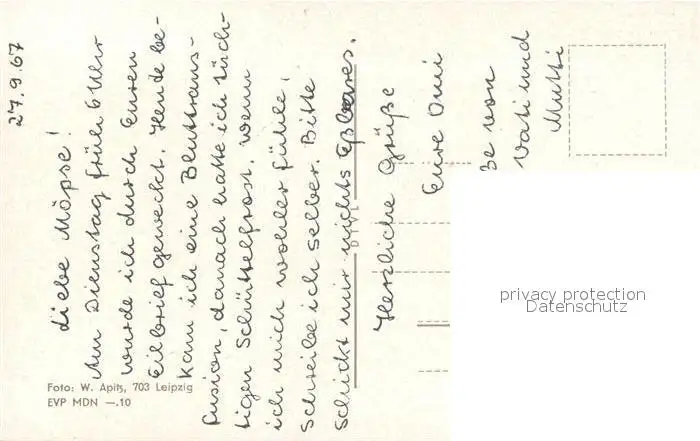 27.9.67
Liebe Möpse!
Am Dienstag früh 6 Uhr
wurde ich durch Euren
Eilbrief geweckt. Heute be-
kam ich eine Bluttrans-
fusion, danach hatte ich tüch-
tigen Schüttelfrost. Wenn
ich mich wohler fühle,
schreibe ich selber. Bitte
schickt mir nichts Eßbares.
Herzliche Grüße
Eure Omi
von
Vati und
Mutti
DPVL
Foto: W. Apits, 703 Leipzig
EVP MDN —.10
privacy protection
Datenschutz